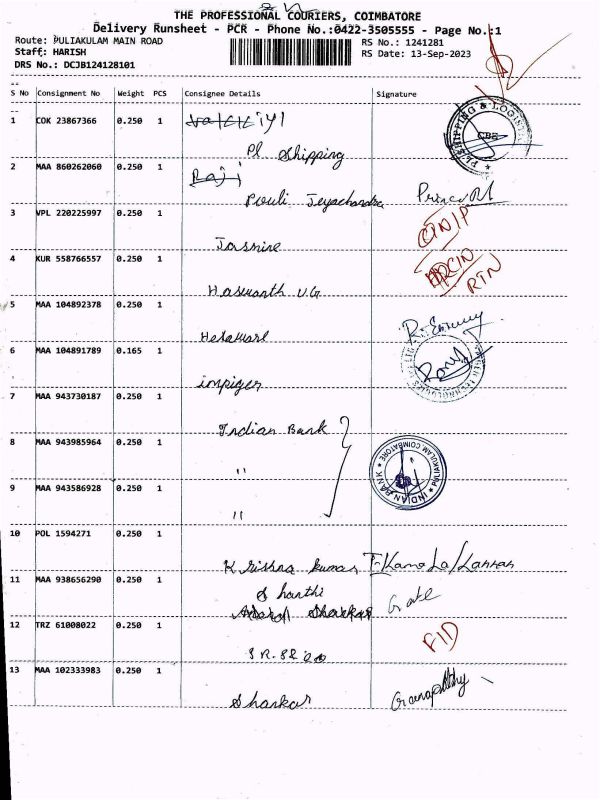 THE PROFESSIONAL COURIERS, COIMBATORE
Delivery Runsheet - PCR - Phone No.:0422-3505555 - Page No.:1
Route: PULIAKULAM MAIN ROAD
RS No.: 1241281
Staff: HARISH
RS Date: 13-Sep-2023
DRS No.: DCJB124128101
S No Consignment No Weight PCS Consignee Details Signature
1 COK 23867366 0.250 1
Pl Shipping
PL SHIPPING & LOGISTI
CBE
2 MAA 860262060 0.250 1
Raji
Pouli Jeyachandra
3 VPL 220225997 0.250 1
Jasmine
4 KUR 558766557 0.250 1
RTN
Haswanth V.G
5 MAA 104892378 0.250 1
6 MAA 104891789 0.165 1
impiger
7 MAA 943730187 0.250 1
Indian Bank
8 MAA 943985964 0.250 1
"
INDIAN BANK
PULIAKULAM, COIMBATORE
9 MAA 943586928 0.250 1
"
10 POL 1594271 0.250 1
Krishna kumar
11 MAA 938656290 0.250 1
Shanthi
12 TRZ 61008022 0.250 1
13 MAA 102333983 0.250 1
Shankar